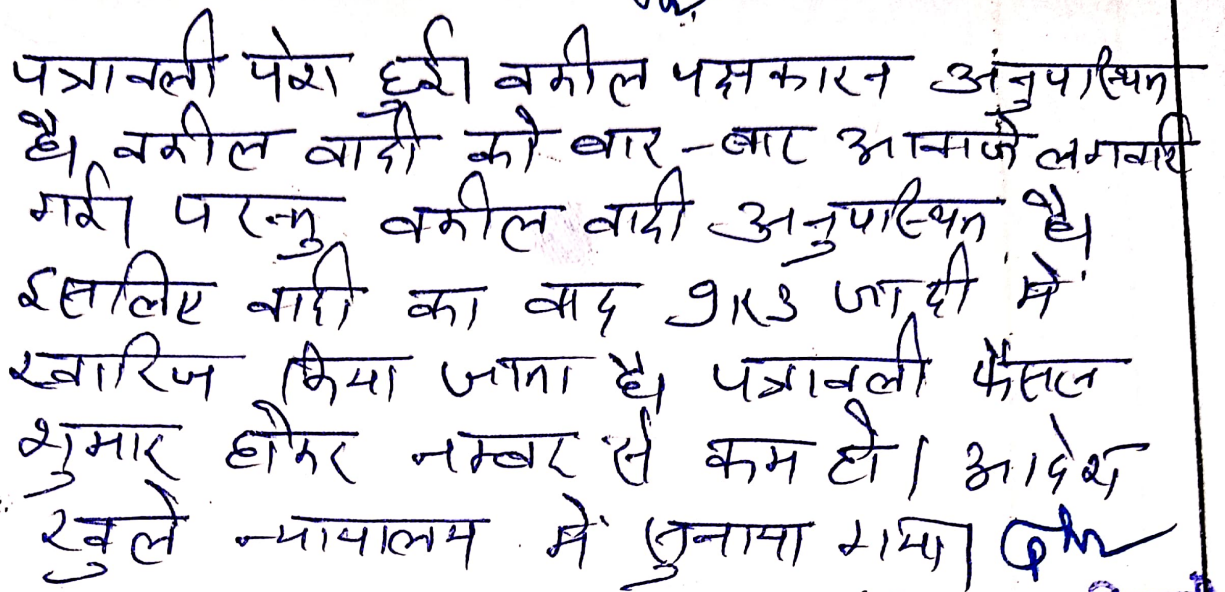 पत्रावली पेश हुई। वकील पक्षकारन अनुपस्थित
है। वकील वादी को बार-बार आवाजें लगवाई
गई। परन्तु वकील वादी अनुपस्थित है।
इसलिए वादी का वाद 9R3 जा दी में
खारिज किया जाता है। पत्रावली फैसल
शुमार होकर नम्बर से कम हो। आदेश
खुले न्यायालय में सुनाया गया।